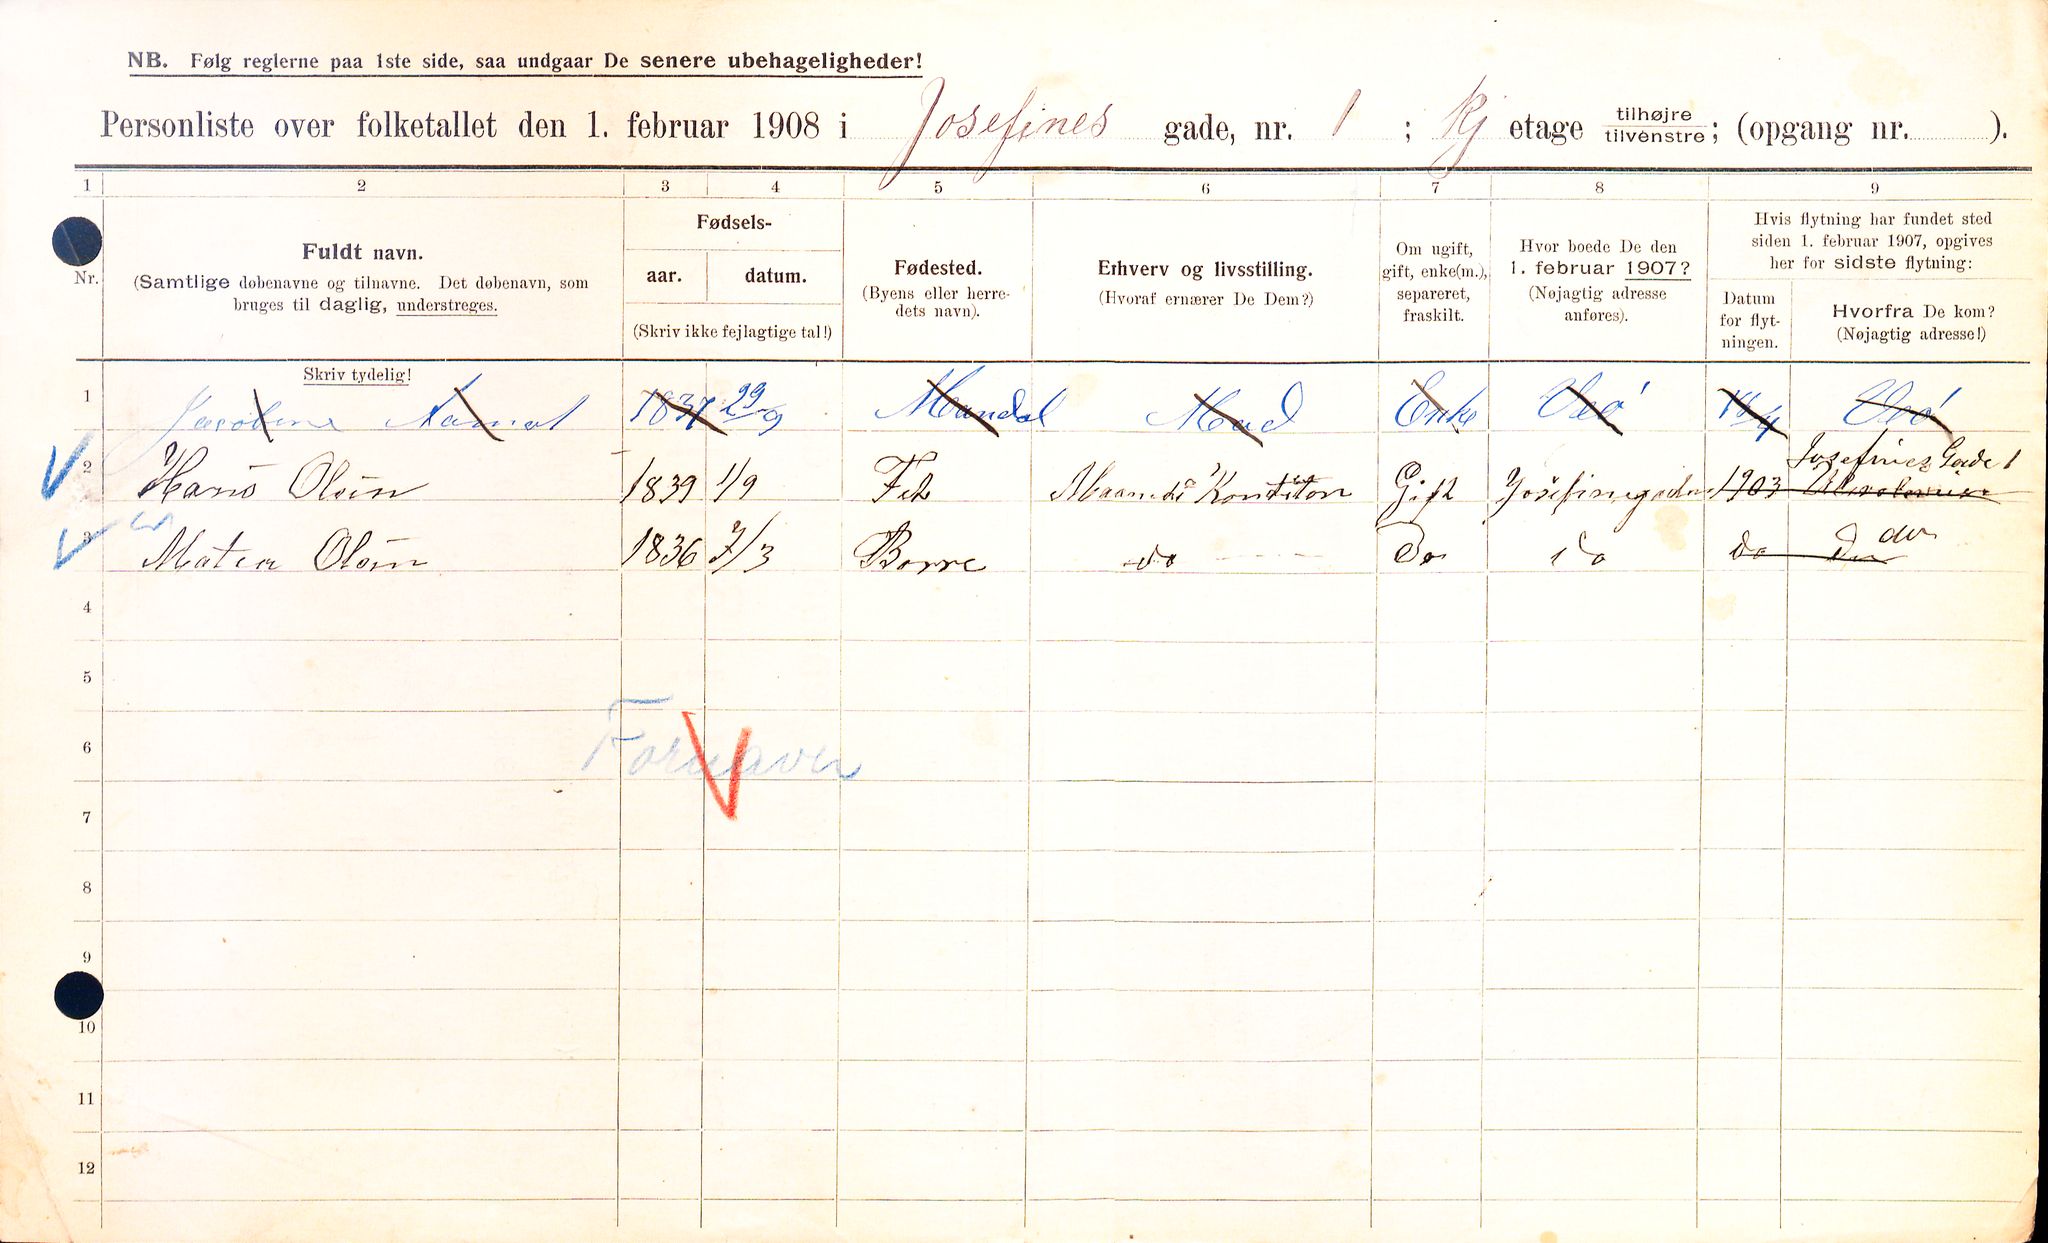 NB. Følg reglerne paa 1ste side, saa undgaar De senere ubehageligheder!
Personliste over folketallet den 1. februar 1908 i Josefines gade, nr. 1 ; Kj etage tilhøjre tilvenstre; (opgang nr. ).
1 2 3 4 5 6 7 8 9
Nr.
Fuldt navn.
(Samtlige døbenavne og tilnavne. Det døbenavn, som
bruges til daglig, understreges.
Skriv tydelig!
Fødsels-
aar. datum.
(Skriv ikke fejlagtige tal!)
Fødested.
(Byens eller herre-
dets navn).
Erhverv og livsstilling.
(Hvoraf ernærer De Dem?)
Om ugift,
gift, enke(m.),
separeret,
fraskilt.
Hvor boede De den
1. februar 1907?
(Nøjagtig adresse
anføres).
Hvis flytning har fundet sted
siden 1. februar 1907, opgives
her for sidste flytning:
Datum
for flyt-
ningen.
Hvorfra De kom?
(Nøjagtig adresse!)
1 1837 29/9 Mandal Enke
2 Hans Olsen 1839 1/9 Fet Gift 1903 Josefines Gade 1
3 Olsen 1836 7/3 Borre do Do do do do
4
5
6
7
8
9
10
11
12